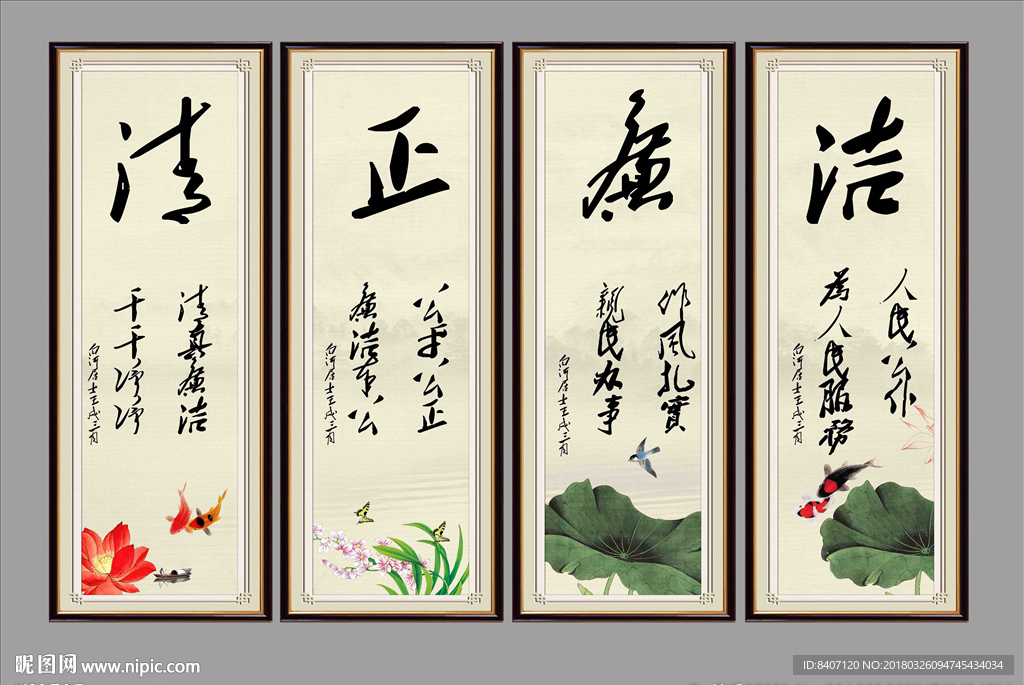 清
清真廉洁
干干净净
白河居士壬戌三月
正
公平公正
廉洁奉公
白河居士壬戌三月
廉
作風扎實
親民办事
白河居士壬戌三月
洁
人民公仆
為人民服務
白河居士壬戌三月
昵图网 www.nipic.com
ID:8407120 NO:20180326094745434034